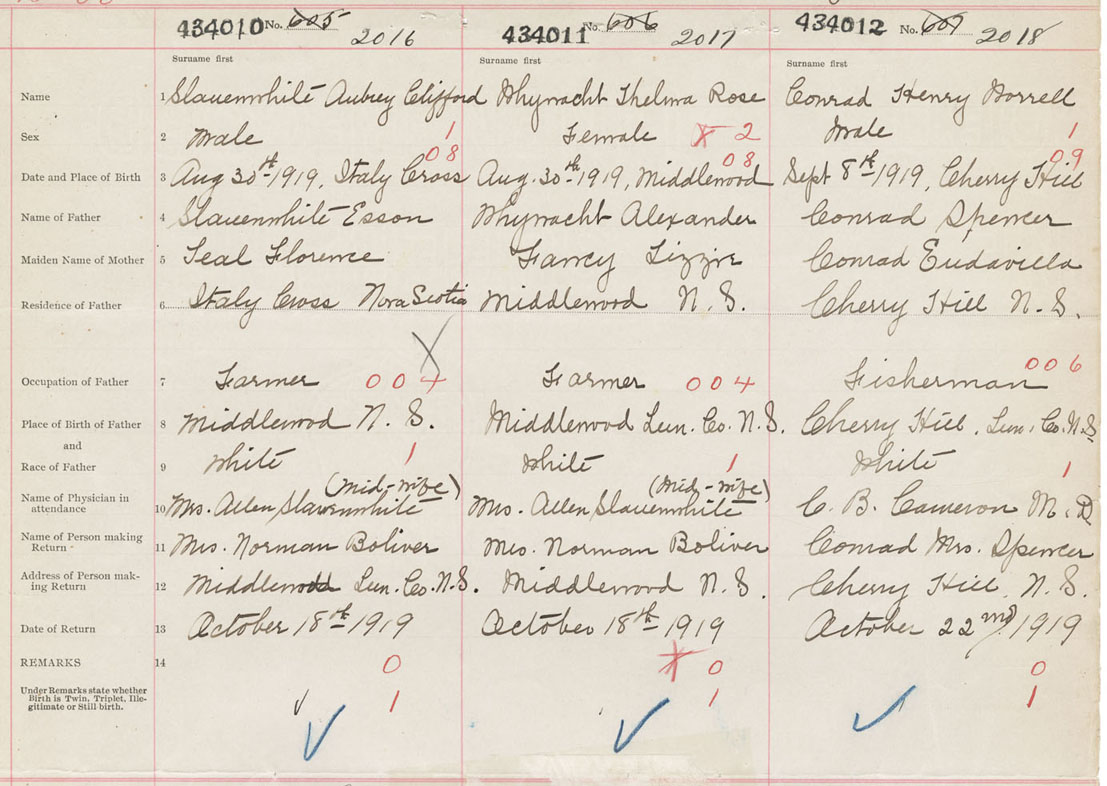 434010 No. 605 2016 434011 No. 606 2017 434012 No. 607 2018
Surname first Surname first Surname first
Name 1 Slauenwhite Aubrey Clifford Whynacht Thelma Rose Conrad Henry Worrell
Sex 2 Male 1 Female X 2 Male 1
08 08 09
Date and Place of Birth 3 Aug 30th 1919, Italy Cross Aug. 30th 1919, Middlewood Sept 8th 1919, Cherry Hill
Name of Father 4 Slauenwhite Esson Whynacht Alexander Conrad Spencer
Maiden Name of Mother 5 Teal Florence Fancy Lizzie Conrad Eudavilla
Residence of Father 6 Italy Cross Nova Scotia Middlewood N. S. Cherry Hill N. S.
Occupation of Father 7 Farmer 004 Farmer 004 Fisherman 006
Place of Birth of Father 8 Middlewood N. S. Middlewood Lun. Co. N. S. Cherry Hill, Lun. Co. N. S.
and
Race of Father 9 White 1 White 1 White 1
(Mid-wife) (Mid-wife)
Name of Physician in
attendance 10 Mrs. Allen Slauenwhite Mrs. Allen Slauenwhite C. B. Cameron M. D.
Name of Person making
Return 11 Mrs. Norman Boliver Mrs. Norman Boliver Conrad Mrs. Spencer
Address of Person mak-
ing Return 12 Middlewood Lun. Co. N. S. Middlewood N. S. Cherry Hill, N. S.
Date of Return 13 October 18th 1919 October 18th 1919 October 22nd 1919
REMARKS 14 0 X 0 0
Under Remarks state whether
Birth is Twin, Triplet, Ille-
gitimate or Still birth. 1 1 1